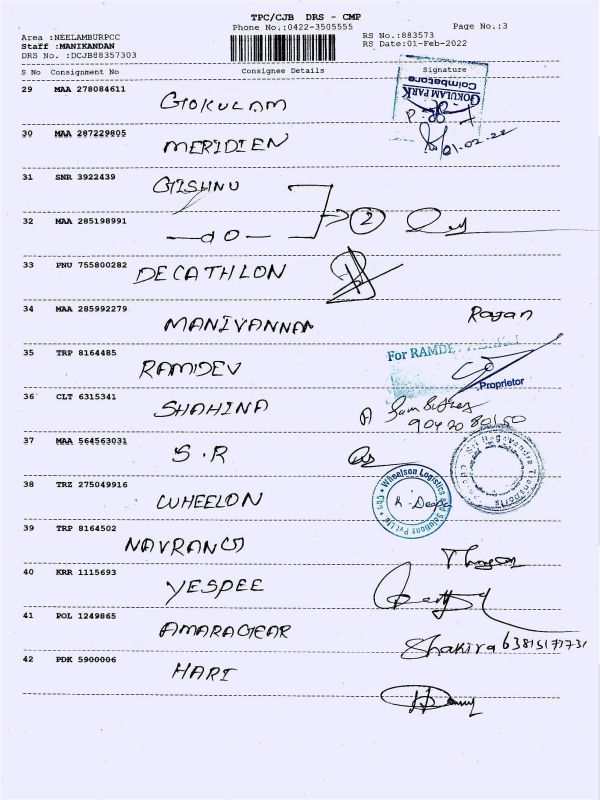 TPC/CJB DRS - CMP
Phone No.:0422-3505555
Page No.:3
Area :NEELAMBURPCC
RS No.:883573
Staff :MANIKANDAN
RS Date:01-Feb-2022
DRS No. :DCJB88357303
S No Consignment No Consignee Details Signature
GOKULAM PARK
Coimbatore
29 MAA 278084611 GOKULAM
30 MAA 287229805 MERIDIEN 01-02-22
31 SNR 3922439 GISHNU
32 MAA 285198991 —do— 2
33 PNU 755800282 DECATHLON
34 MAA 285992279 MANIVANNAN Ragan
35 TRP 8164485 RAMDEV For RAMDEV
Proprietor
36 CLT 6315341 SHAHINA
37 MAA 564563031 S.R
38 TRZ 275049916 WHEELON Wheelson Logistics and Solutions Pvt Ltd
39 TRP 8164502 NAVRANG
40 KRR 1115693 YESPEE
41 POL 1249865 AMARAGEAR Shakira
42 PDK 5900006 HARI